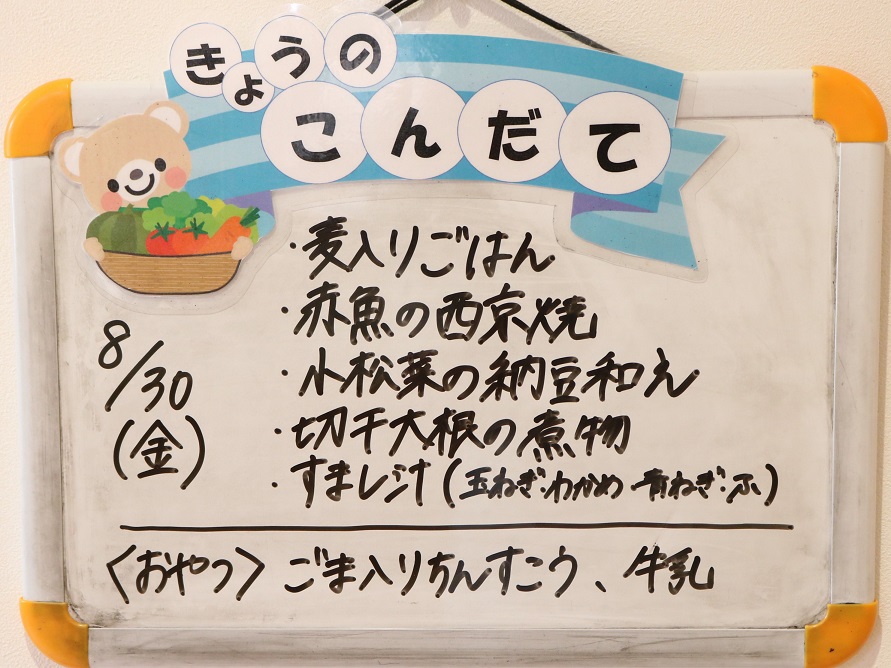 きょうの
こんだて
・麦入りごはん
・赤魚の西京焼
・小松菜の納豆和え
・切干大根の煮物
・すまし汁(玉ねぎ・わかめ・青ねぎ・ふ)
8/30
(金)
〈おやつ〉ごま入りちんすこう、牛乳